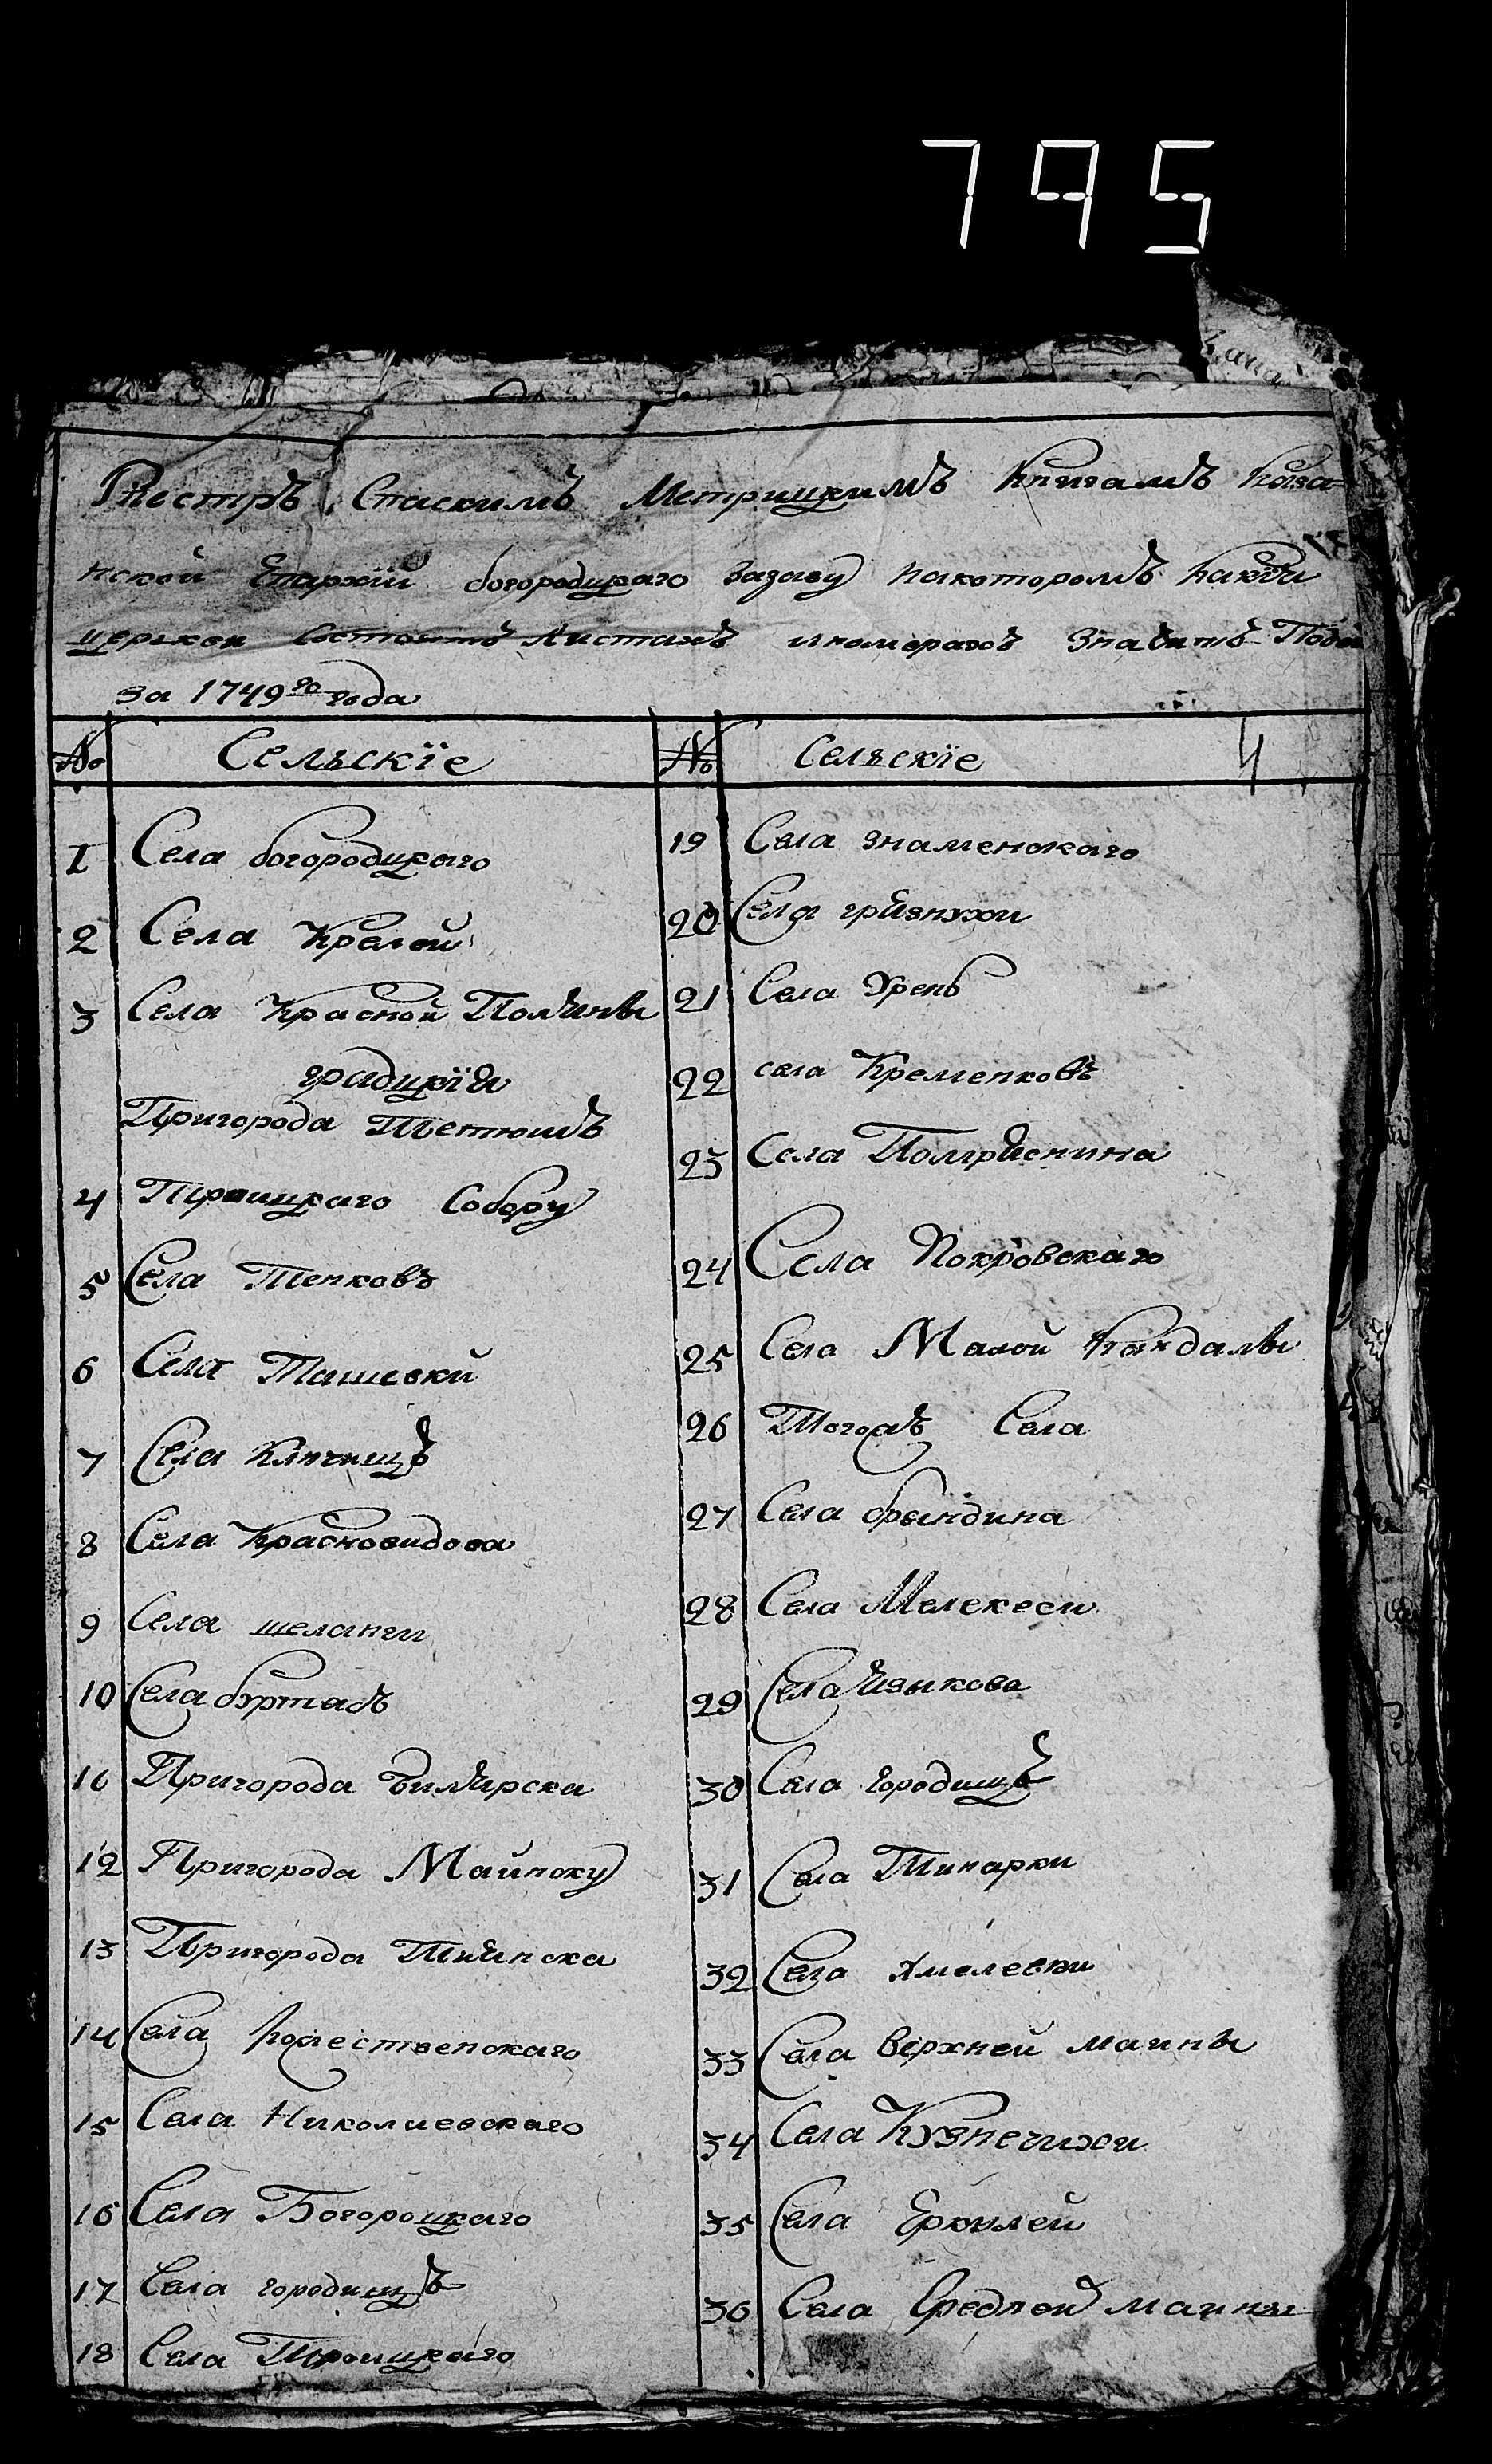 795
Реестръ Спаскимъ Метрицкимъ Книгамъ Каза=
нской Епархїи богородицкаго Заказу
церькви листахъ и номерахъ Значитъ
за 1749го года
№ Сельскїе
1 Села богородицкаго
2 Села Крелей
3 Села Красной Поляны
градцкїя
Пригорода Тетюшъ
4 Троицкаго Собору
5 Села Тенковъ
6 Села Ташевки
7 Села Ключищъ
8 Села Красновидова
9 Села шеланги
10 Села буртасъ
11 Пригорода билярска
12 Пригорода Майнску
13 Пригорода Тиинска
14 Села Рожественскаго
15 Села Николаевскаго
16 Села Богороцкаго
17 Села городищъ
18 Села Троицкаго
№ Сельскїе 4
19 Села знаменскаго
20 Села грязнухи
21 Села Хрень
22 села Кременковъ
23 Села
24 Села Покровскаго
25 Села Малой Кандалы
26 Тогожъ Села
27 Села брындина
28 Села Мелекеси
29 Села Языкова
30 Села городищъ
31 Села Тинарки
32 Села Хмелевки
33 Села верхней маины
34 Села Кузнечихи
35 Села Ерыклей
36 Села Средней маины